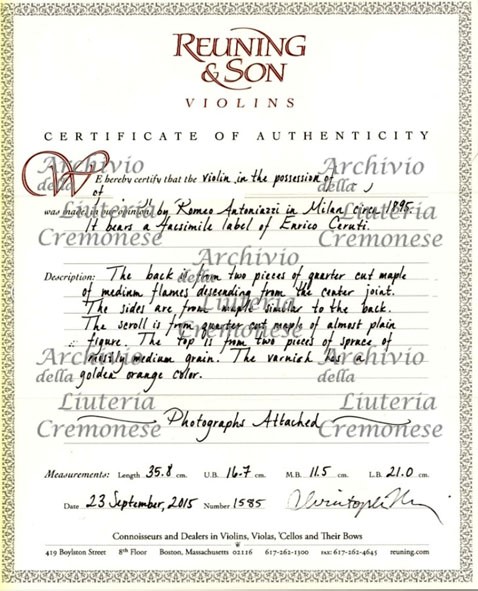 REUNING
& SON
VIOLINS
CERTIFICATE OF AUTHENTICITY
WE hereby certify that the violin in the possession of
of ,
was made in our opinion by Romeo Antoniazzi in Milan, circa 1895.
It bears a facsimile label of Enrico Ceruti.
Description: The back is from two pieces of quarter cut maple
of medium flames descending from the center joint.
The sides are from maple similar to the back.
The scroll is from quarter cut maple of almost plain
figure. The top is from two pieces of spruce of
mostly medium grain. The varnish has a
golden orange color.
Photographs Attached
Measurements: Length 35.8 cm. U.B. 16.7 cm. M.B. 11.5 cm. L.B. 21.0 cm.
Date 23 September, 2015 Number 1585
Connoisseurs and Dealers in Violins, Violas, 'Cellos and Their Bows
419 Boylston Street 8th Floor Boston, Massachusetts 02116 617-262-1300 FAX: 617-262-4645 reuning.com
Archivio
della
Liuteria
Cremonese
Archivio
della
Liuteria
Cremonese
Archivio
della
Liuteria
Cremonese
Archivio
della
Liuteria
Cremonese
Archivio
della
Liuteria
Cremonese